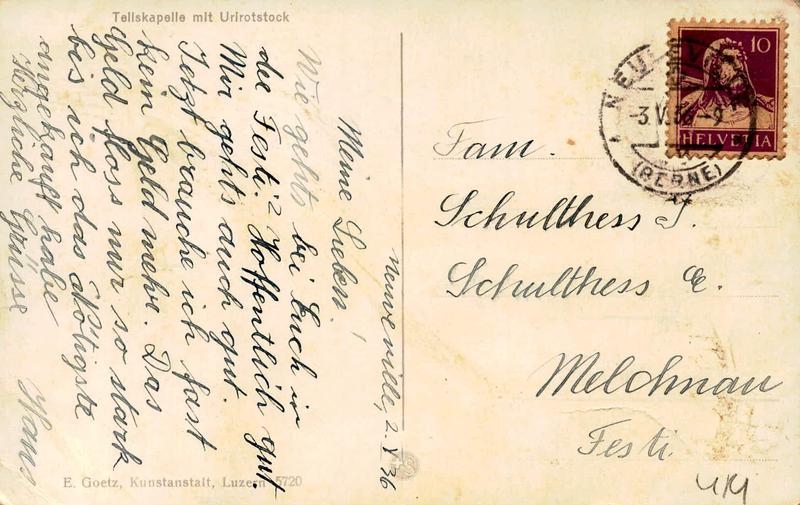 Tellskapelle mit Urirotstock
Neuveville, 2. V 36
Meine Lieben!
Wie gehts bei Euch in
der Festi? Hoffentlich gut.
Mir gehts auch gut.
Jetzt brauche ich fast
kein Geld mehr. Das
Geld floss nur so stark
bis ich das Nötigste
angekauft habe
Herzliche Grüsse
Hans
E. Goetz, Kunstanstalt, Luzern 5720
10
HELVETIA
-3.V.36-9
(BERNE)
Fam.
Schulthess J.
Schulthess E.
Melchnau
Festi